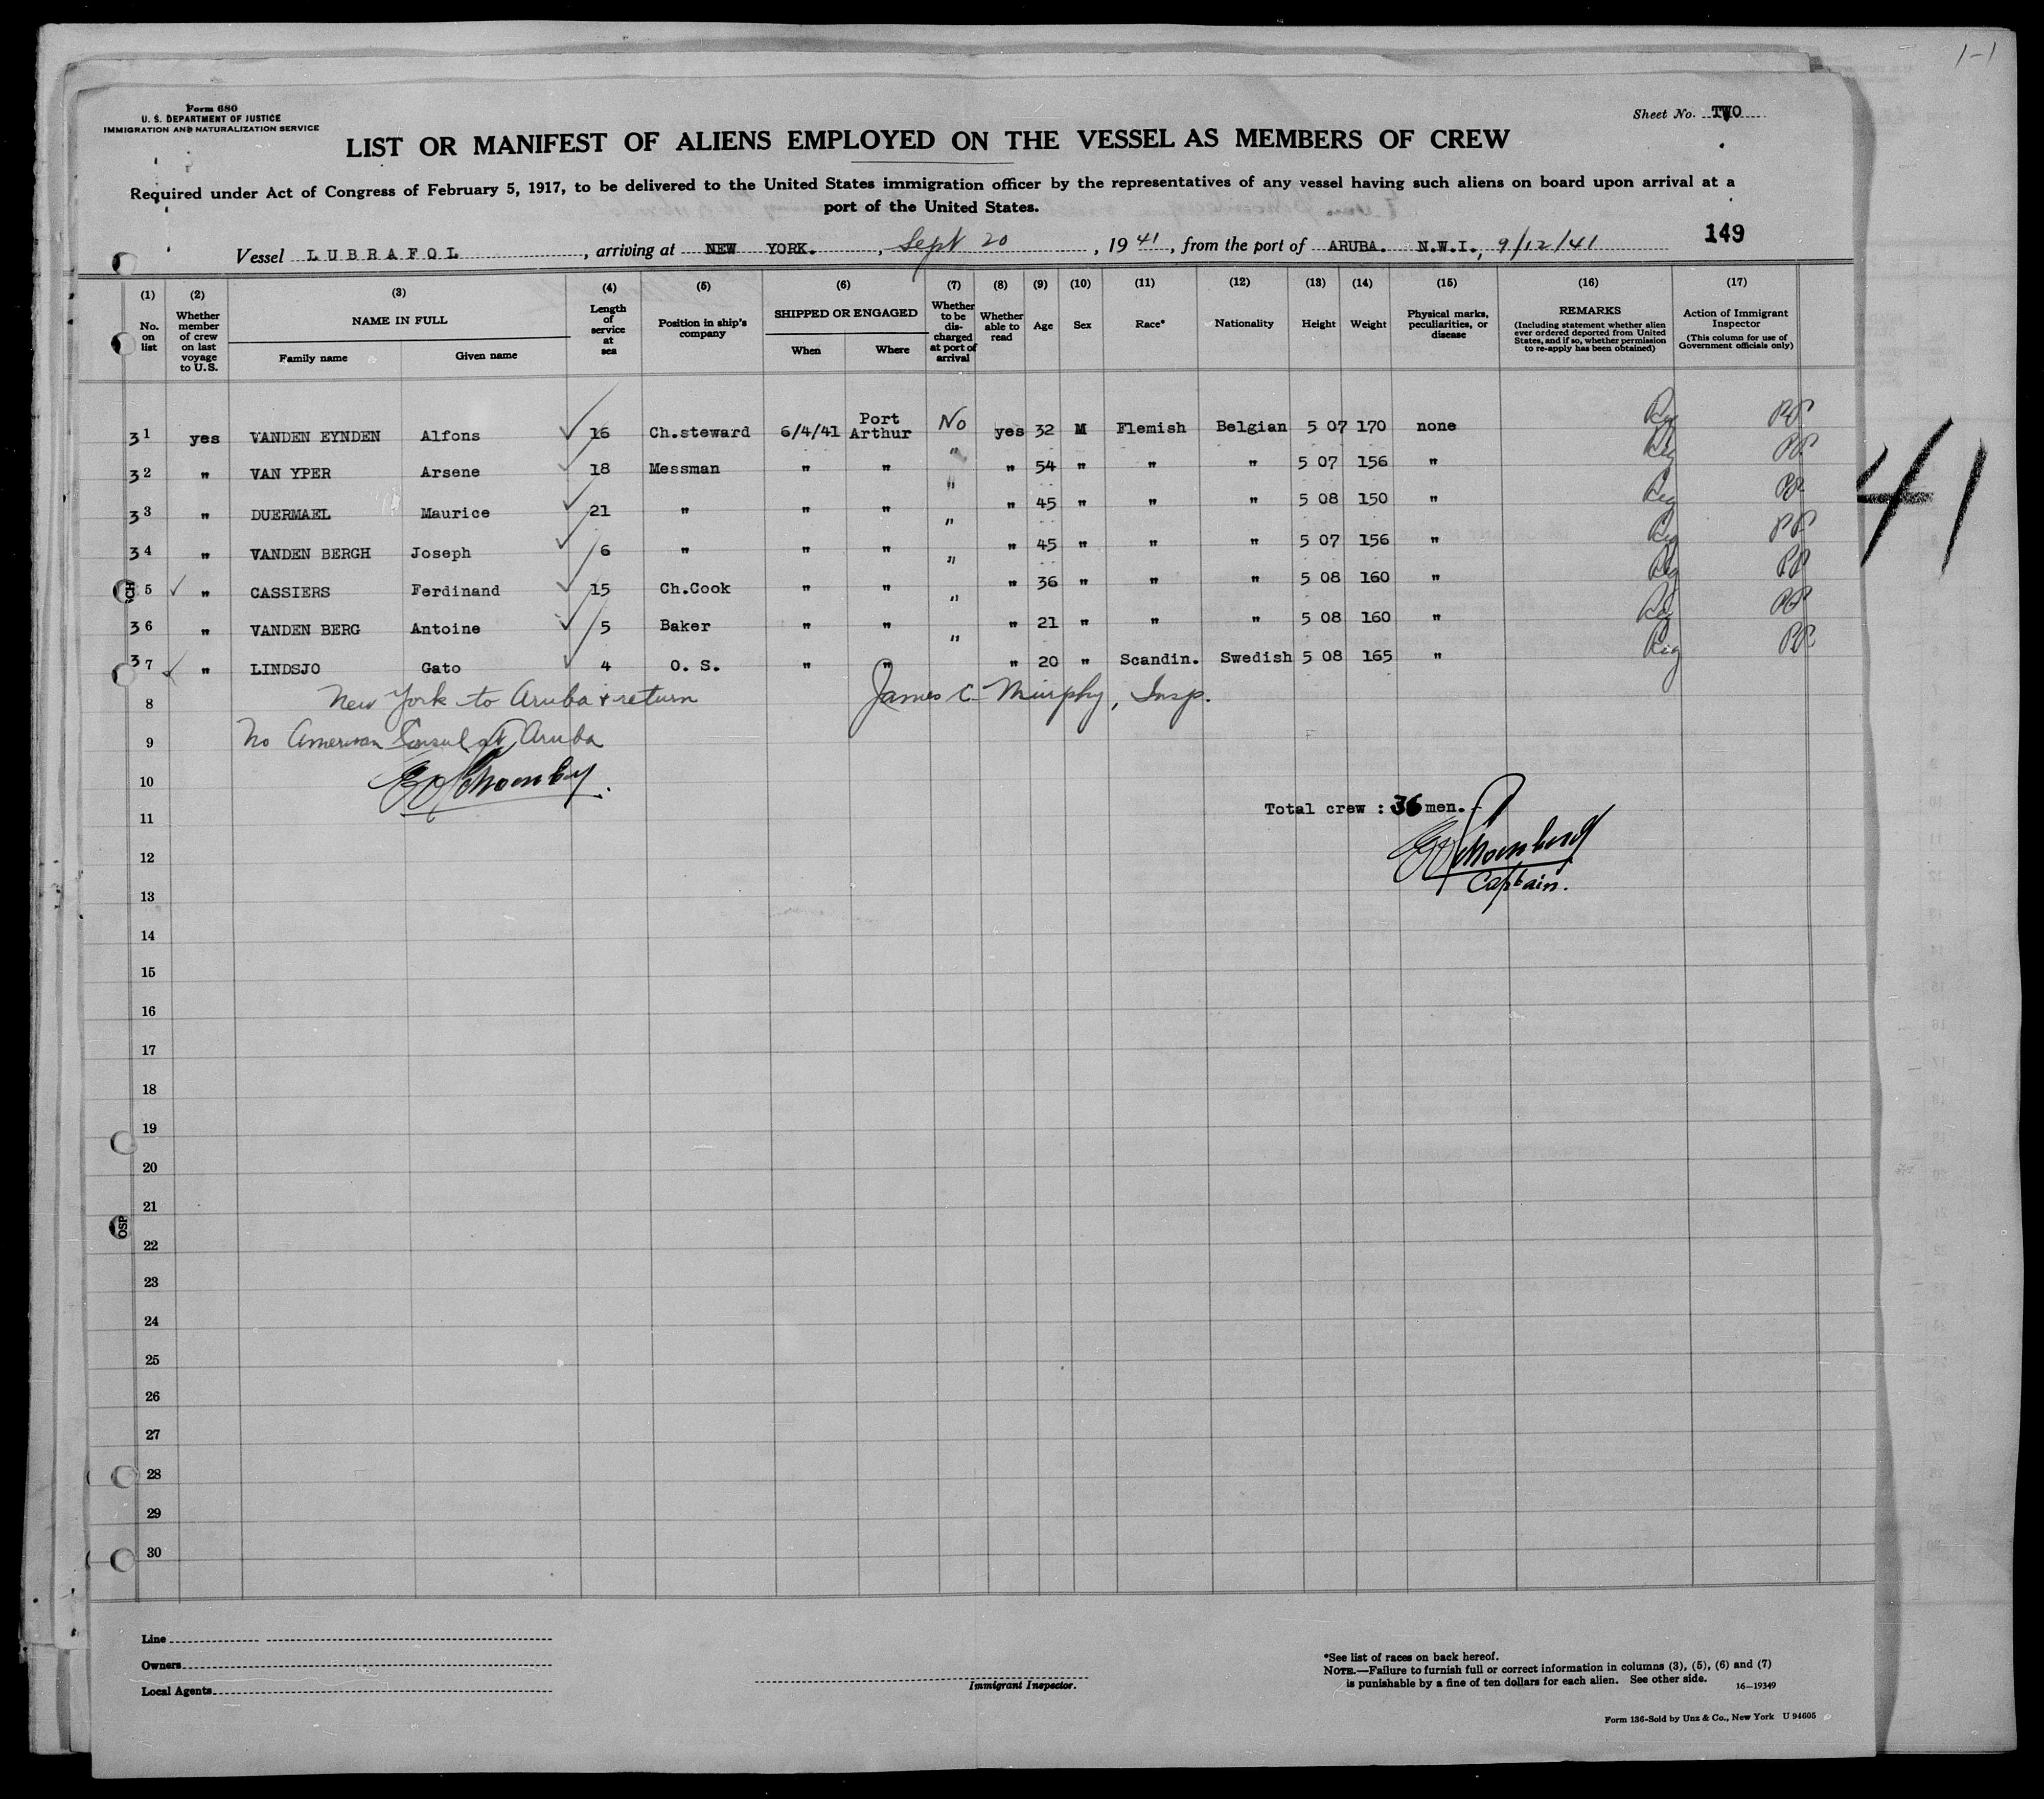 1-1
Form 680
U. S. DEPARTMENT OF JUSTICE
IMMIGRATION AND NATURALIZATION SERVICE
Sheet No. TWO
LIST OR MANIFEST OF ALIENS EMPLOYED ON THE VESSEL AS MEMBERS OF CREW
Required under Act of Congress of February 5, 1917, to be delivered to the United States immigration officer by the representatives of any vessel having such aliens on board upon arrival at a
port of the United States.
149
Vessel LUBRAFOL, arriving at NEW YORK., Sept 20, 1941, from the port of ARUBA. N.W.I., 9/12/41
(1) No. on list
(2) Whether member of crew on last voyage to U.S.
(3) NAME IN FULL
Family name
Given name
(4) Length of service at sea
(5) Position in ship's company
(6) SHIPPED OR ENGAGED
When
Where
(7) Whether to be discharged at port of arrival
(8) Whether able to read
(9) Age
(10) Sex
(11) Race*
(12) Nationality
(13) Height
(14) Weight
(15) Physical marks, peculiarities, or disease
(16) REMARKS
(Including statement whether alien ever ordered deported from United States, and if so, whether permission to re-apply has been obtained)
(17) Action of Immigrant Inspector
(This column for use of Government officials only)
31 yes VANDEN EYNDEN Alfons 16 Ch.steward 6/4/41 Port Arthur No yes 32 M Flemish Belgian 5 07 170 none Reg
32 " VAN YPER Arsene 18 Messman " " " " 54 " " " 5 07 156 " Reg
33 " DUERMAEL Maurice 21 " " " " " 45 " " " 5 08 150 " Reg
34 " VANDEN BERGH Joseph 6 " " " " " 45 " " " 5 07 156 " Reg
5 " CASSIERS Ferdinand 15 Ch.Cook " " " " 36 " " " 5 08 160 " Reg
36 " VANDEN BERG Antoine 5 Baker " " " " 21 " " " 5 08 160 " Reg
37 " LINDSJO Gato 4 O. S. " " " " 20 " Scandin. Swedish 5 08 165 " Reg
41
8 New York to Aruba & return James C. Murphy, Insp.
9 No American Consul at Aruba
10
Total crew : 36 men.-
11
12
Captain.
13
14
15
16
17
18
19
20
21
OSP
22
23
24
25
26
27
28
29
30
Line
Owners
Local Agents
Immigrant Inspector.
*See list of races on back hereof.
NOTE.—Failure to furnish full or correct information in columns (3), (5), (6) and (7)
is punishable by a fine of ten dollars for each alien. See other side.
16—19349
Form 136-Sold by Unz & Co., New York U 94605